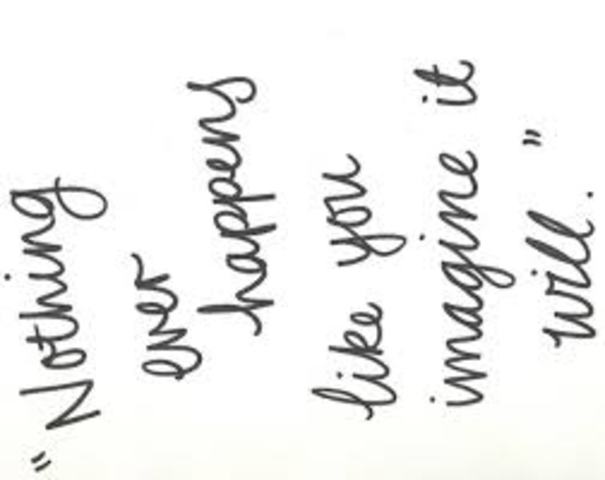 "Nothing
ever
happens
like you
imagine it
will."